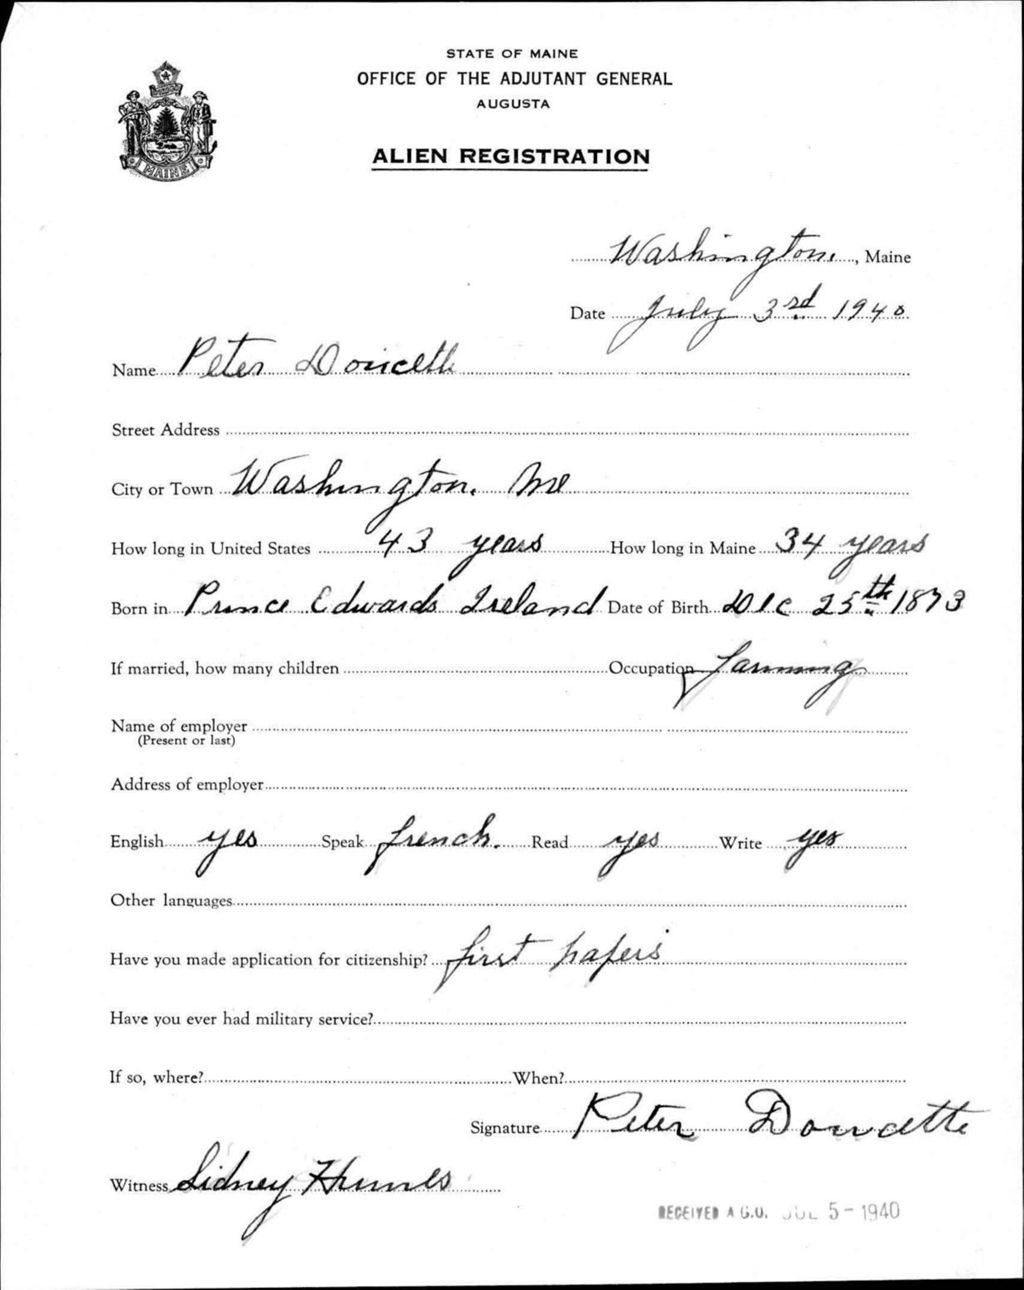 STATE OF MAINE
OFFICE OF THE ADJUTANT GENERAL
AUGUSTA
ALIEN REGISTRATION
MAINE
Washington, Maine
Date July 3rd 1940
Name Peter Doucette
Street Address
City or Town Washington, Me
How long in United States 43 years How long in Maine 34 years
Born in Prince Edwards Ireland Date of Birth Dec 25th 1873
If married, how many children Occupation farming
Name of employer
(Present or last)
Address of employer
English yes Speak french. Read yes Write yes
Other languages
Have you made application for citizenship? first papers
Have you ever had military service?
If so, where? When?
Signature Peter Doucette
Witness Sidney Humes
RECEIVED A.G.O. JUL 5 - 1940